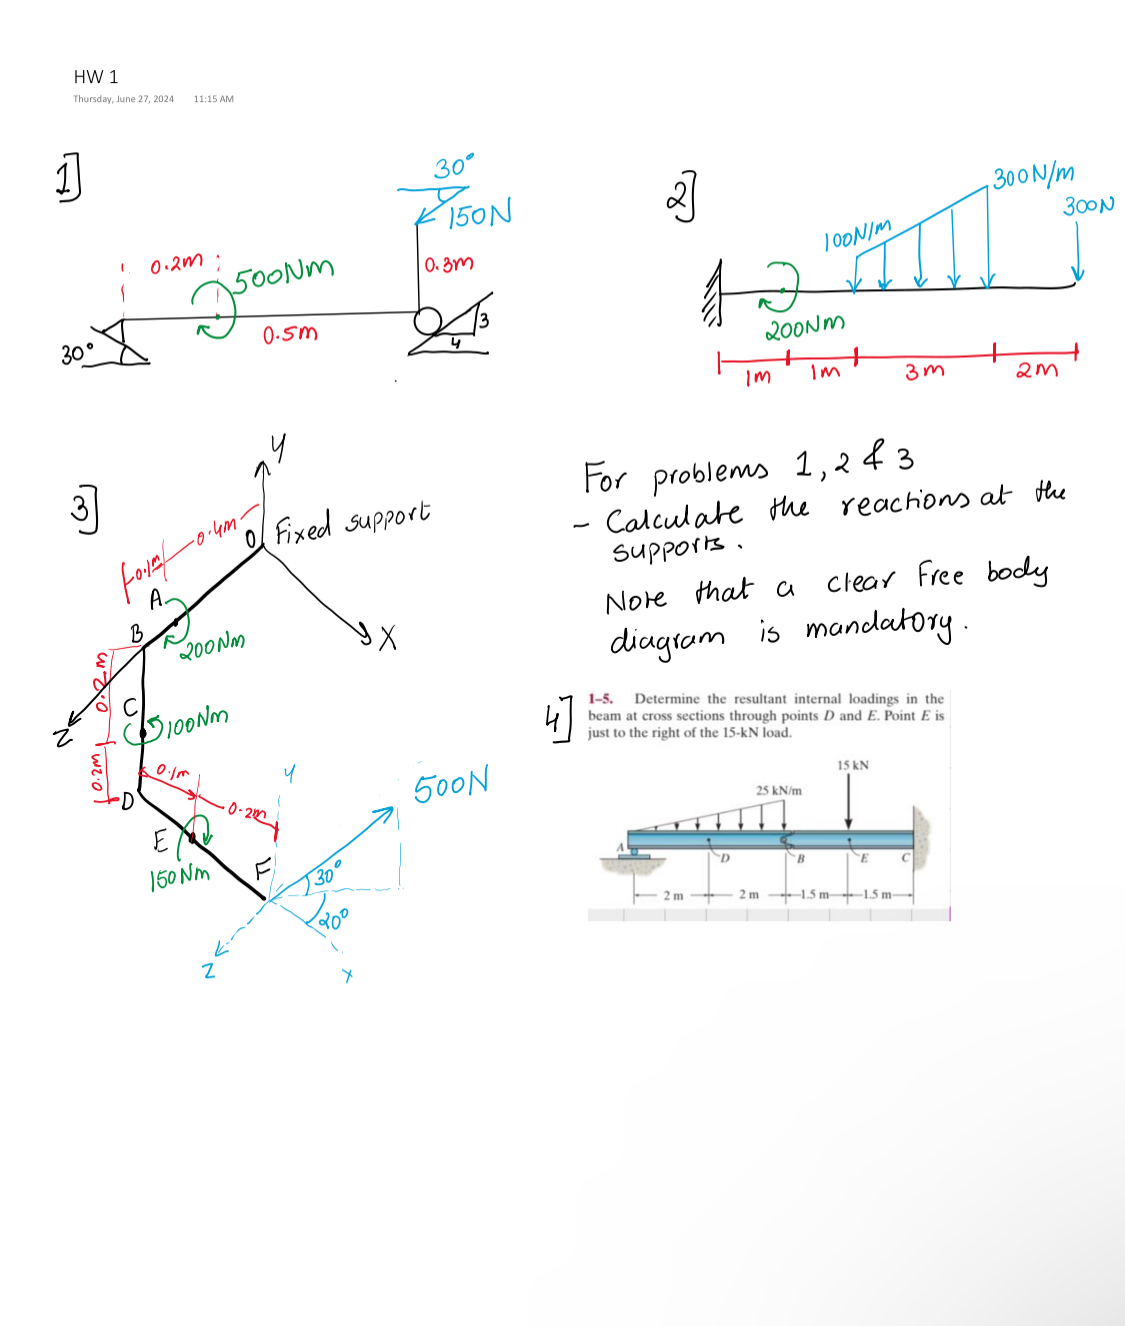 HW 1
Thursday, June 27, 2024 11:15 AM
1]
30°
150N
0.2m
500Nm
0.3m
0.5m
30°
3
4
2]
300N/m
300N
100N/m
200Nm
1m 1m 3m 2m
3]
Y
0.1m 0.4m
O Fixed support
A
B
200Nm
X
Z
0.2m
C
100Nm
0.2m
D
0.1m
0.2m
E
150Nm
F
y
500N
30°
20°
z
x
For problems 1, 2 & 3
- Calculate the reactions at the
supports.
Note that a clear Free body
diagram is mandatory.
4]
1-5. Determine the resultant internal loadings in the
beam at cross sections through points D and E. Point E is
just to the right of the 15-kN load.
15 kN
25 kN/m
A
D B E C
2 m 2 m 1.5 m 1.5 m